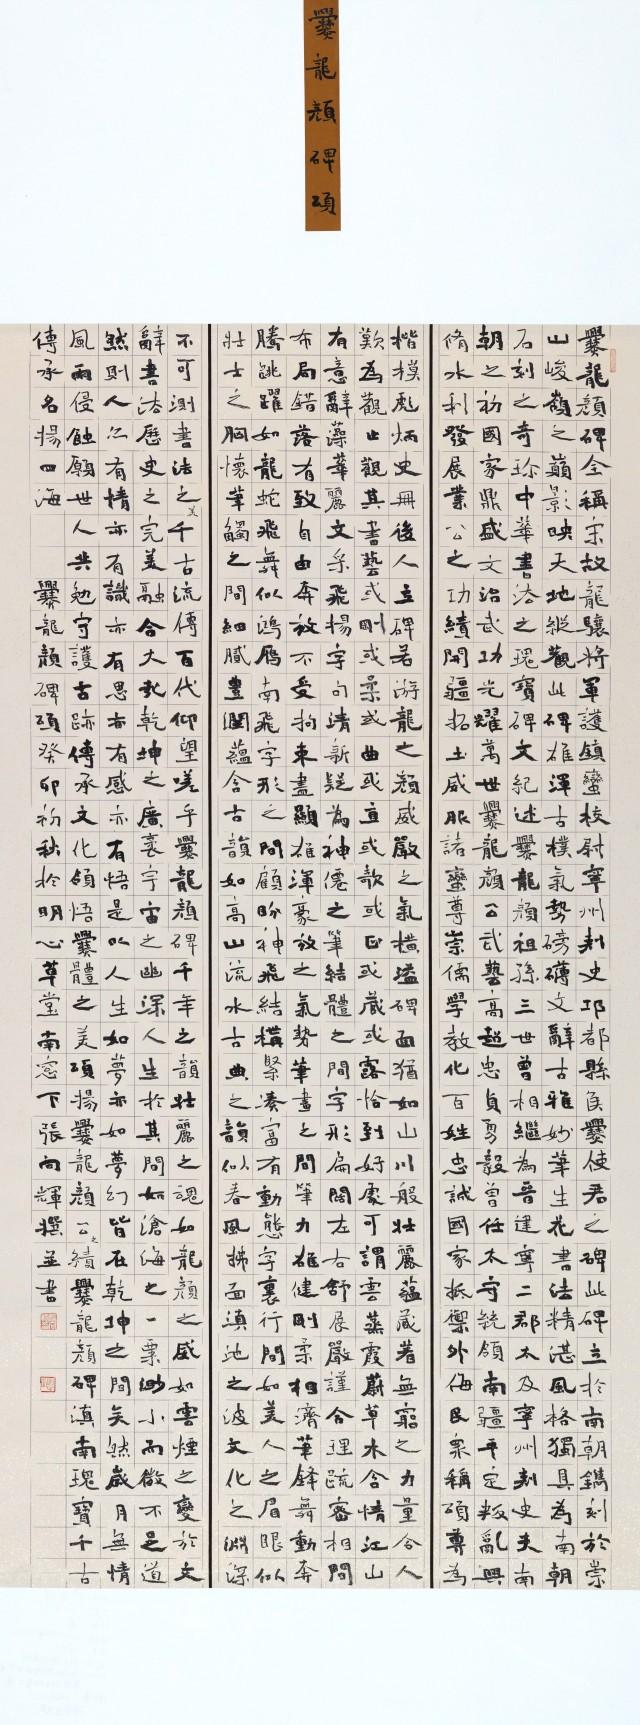 爨龍顏碑頌
爨龍顏碑全稱宋故龍驤將軍護鎮蠻校尉寧州刺史邛都縣侯爨使君之碑此碑立於南朝鐫刻於崇
山峻嶺之巔影映天地縱觀此碑雄渾古樸氣勢磅礴文辭古雅妙筆生花書法精湛風格獨具為南朝
石刻之奇珍中華書法之瑰寶碑文紀述爨龍顏祖孫三世曾相繼為晉建寧二郡太及寧州刺史夫南
朝之初國家鼎盛文治武功光耀萬世爨龍顏公武藝高超忠貞勇毅曾任太守統領南疆平定叛亂興
脩水利發展業公之功績開疆拓土威服諸蠻尊崇儒學教化百姓忠誠國家抵禦外侮民眾稱頌尊為
楷模彪炳史冊後人立碑若游龍之顏威嚴之氣橫溢碑面猶如山川般壯麗蘊藏著無窮之力量令人
歎為觀止觀其書藝或剛或柔或曲或直或欹或正或藏或露恰到好處可謂雲蒸霞蔚草木含情江山
有意辭藻華麗文采飛揚字句清新疑為神僊之筆結體之間字形扁闊左右舒展嚴謹合理疏密相間
布局錯落有致自由奔放不受拘束盡顯雄渾豪放之氣勢筆畫之間筆力雄健剛柔相濟筆鋒舞動奔
騰跳躍如龍蛇飛舞似鴻雁南飛字形之間顧盼神飛結構緊湊富有動態字裏行間如美人之眉眼似
壯士之胸懷筆觸之間細膩豐潤蘊含古韻如高山流水古典之韻似春風拂面滇池之波文化之淵深
不可測書法之美千古流傳百代仰望嗟乎爨龍顏碑千年之韻壯麗之魂如龍顏之威如雲煙之變於文
辭書法歷史之完美融合大哉乾坤之廣袤宇宙之幽深人生於其間如滄海之一粟渺小而微不足道
然則人亦有情亦有識亦有思亦有感亦有悟是以人生如夢亦如夢幻皆在乾坤之間矣然歲月無情
風雨侵蝕願世人共勉守護古跡傳承文化領悟爨體之美頌揚爨龍顏公之績爨龍顏碑滇南瑰寶千古
傳承名揚四海 爨龍顏碑頌癸卯初秋於明心草堂南窗下張向輝撰並書